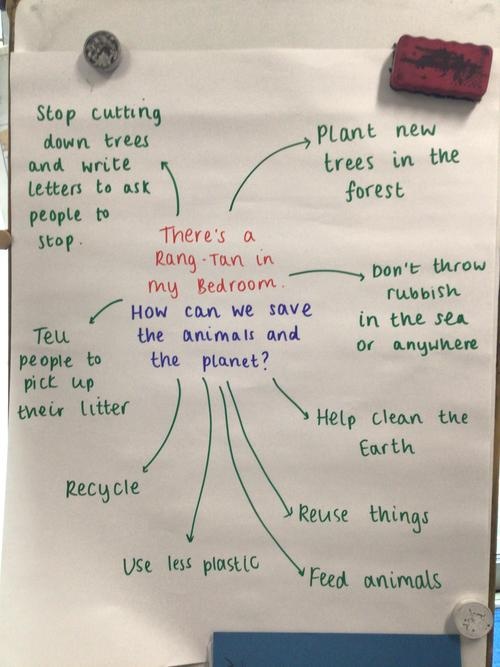 There's a
Rang-Tan in
my Bedroom.
How can we save
the animals and
the planet?
Stop cutting
down trees
and write
letters to ask
people to
stop.
Plant new
trees in the
forest
Don't throw
rubbish
in the sea
or anywhere
Tell
people to
pick up
their litter
Help clean the
Earth
Recycle
Reuse things
Use less plastic
Feed animals